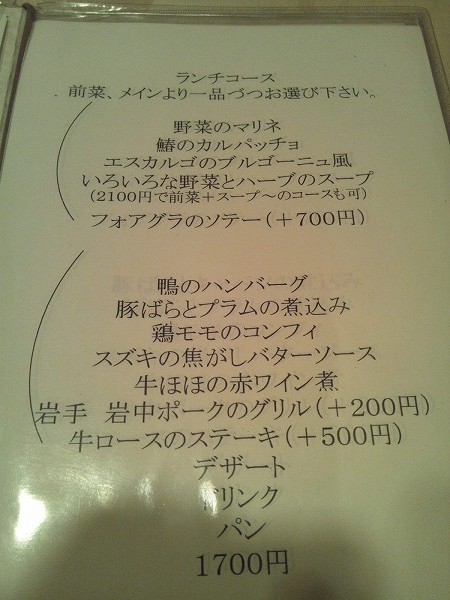 ランチコース
前菜、メインより一品づつお選び下さい。
野菜のマリネ
鰆のカルパッチョ
エスカルゴのブルゴーニュ風
いろいろな野菜とハーブのスープ
(2100円で前菜+スープ～のコースも可)
フォアグラのソテー(+700円)
鴨のハンバーグ
豚ばらとプラムの煮込み
鶏モモのコンフィ
スズキの焦がしバターソース
牛ほほの赤ワイン煮
岩手 岩中ポークのグリル(+200円)
牛ロースのステーキ(+500円)
デザート
ドリンク
パン
1700円